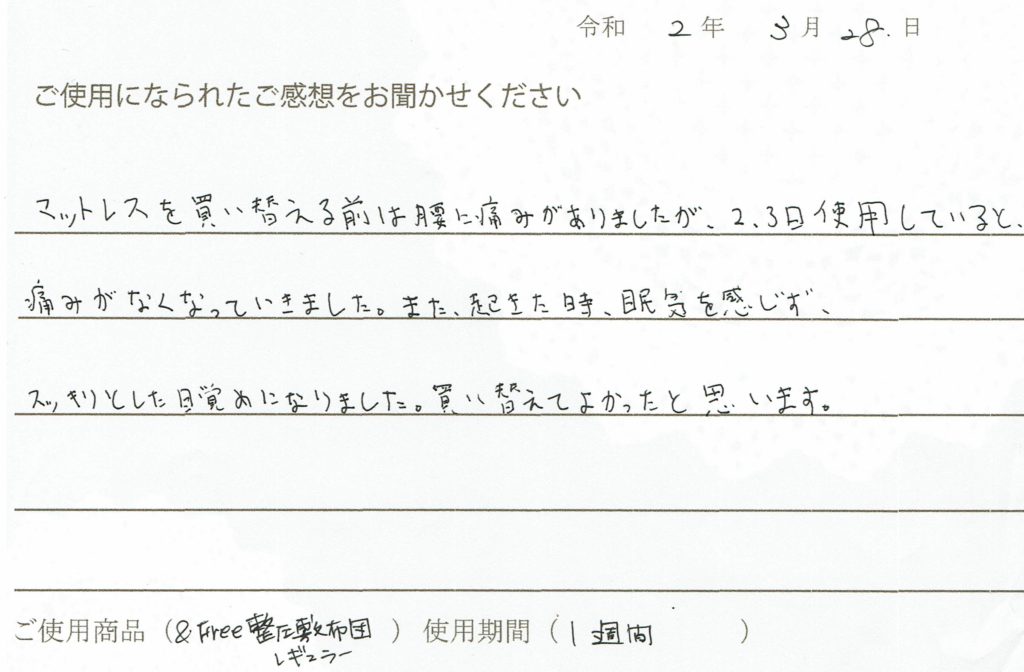 令和 2年 3月 28.日
ご使用になられたご感想をお聞かせください
マットレスを買い替える前は腰に痛みがありましたが、2、3日使用していると、
痛みがなくなっていきました。また、起きた時、眠気を感じず、
スッキリとした目覚めになりました。買い替えてよかったと思います。
ご使用商品（&Free整圧敷布団）使用期間（1週間）
レギュラー